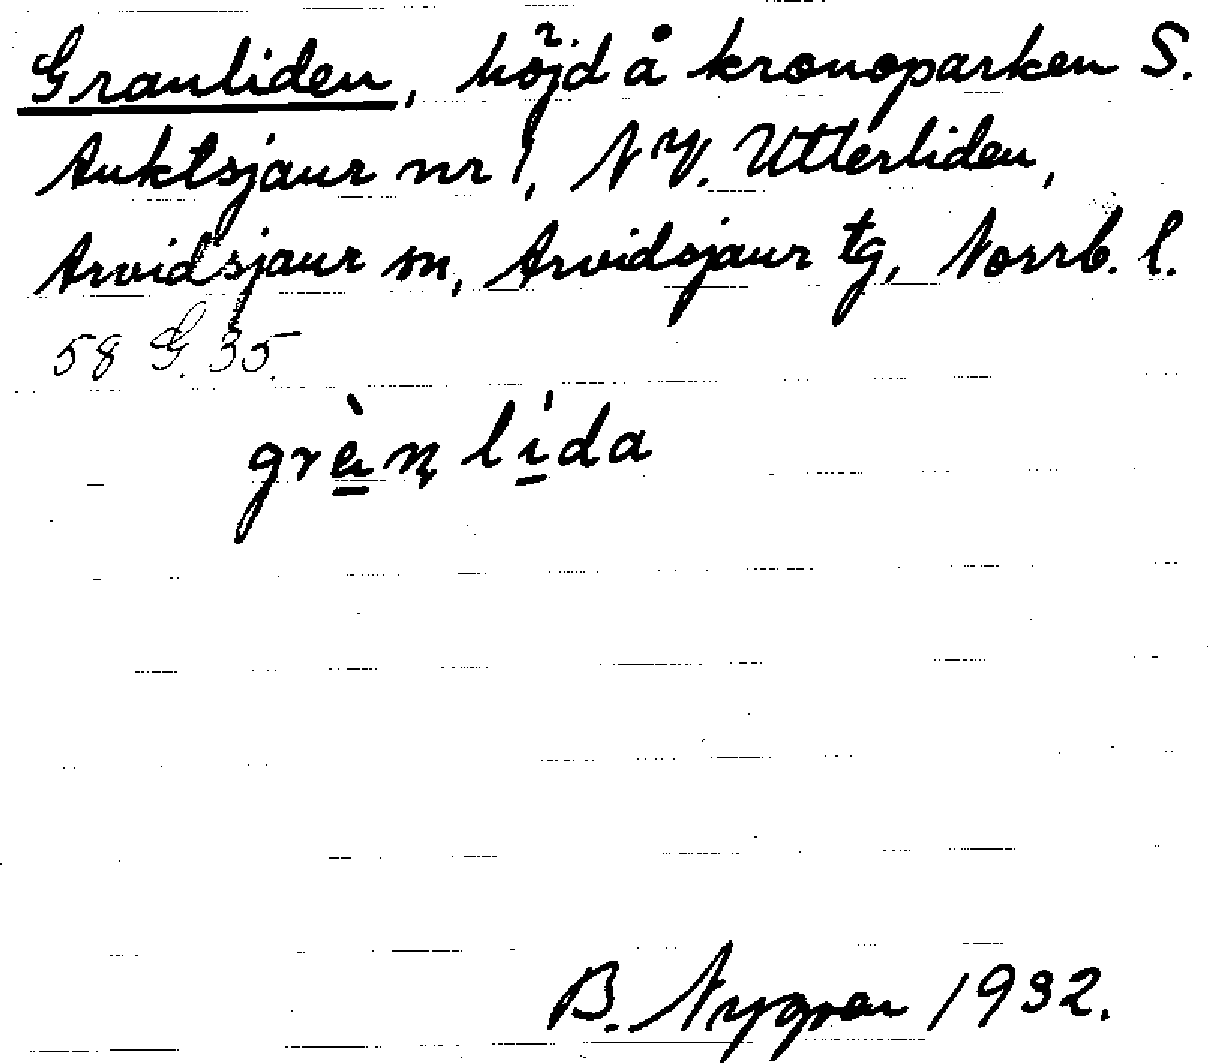 Granliden, höjd å kronoparken S.
Auktsjaur nr 1, NV. Utterliden,
Arvidsjaur sn, Arvidsjaur tg, Norrb. l.
58 G. 35.
gràn lída
B. Nygren 1932.